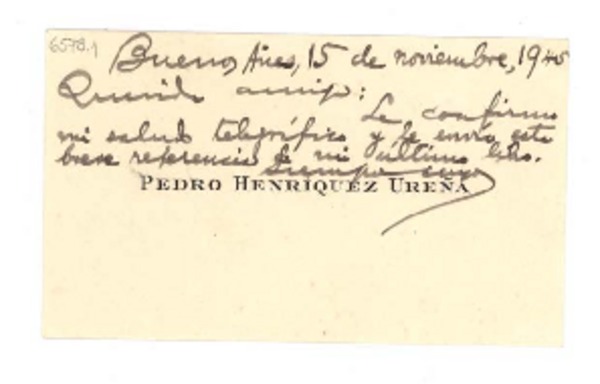 6578.1
Buenos Aires, 15 de noviembre, 1945
Querido amigo:
Le confirmo
mi saludo telegráfico y le envío esta
breve referencia de mi último libro.
Siempre suyo
PEDRO HENRIQUEZ UREÑA